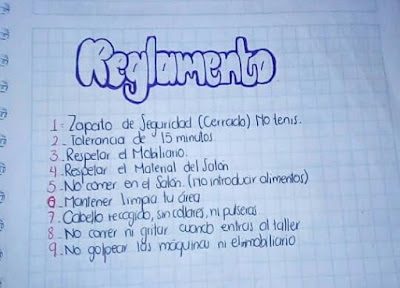 Reglamento
1- Zapato de Seguridad (Cerrado) No tenis.
2- Tolerancia de 15 minutos.
3- Respetar el Mobiliario.
4- Respetar el Material del Salón
5- No comer en el Salón. (no introducir alimentos)
6- Mantener limpia tu área
7- Cabello recogido, sin collares, ni pulseras.
8- No correr ni gritar cuando entras al taller
9- No golpear las máquinas ni el mobiliario